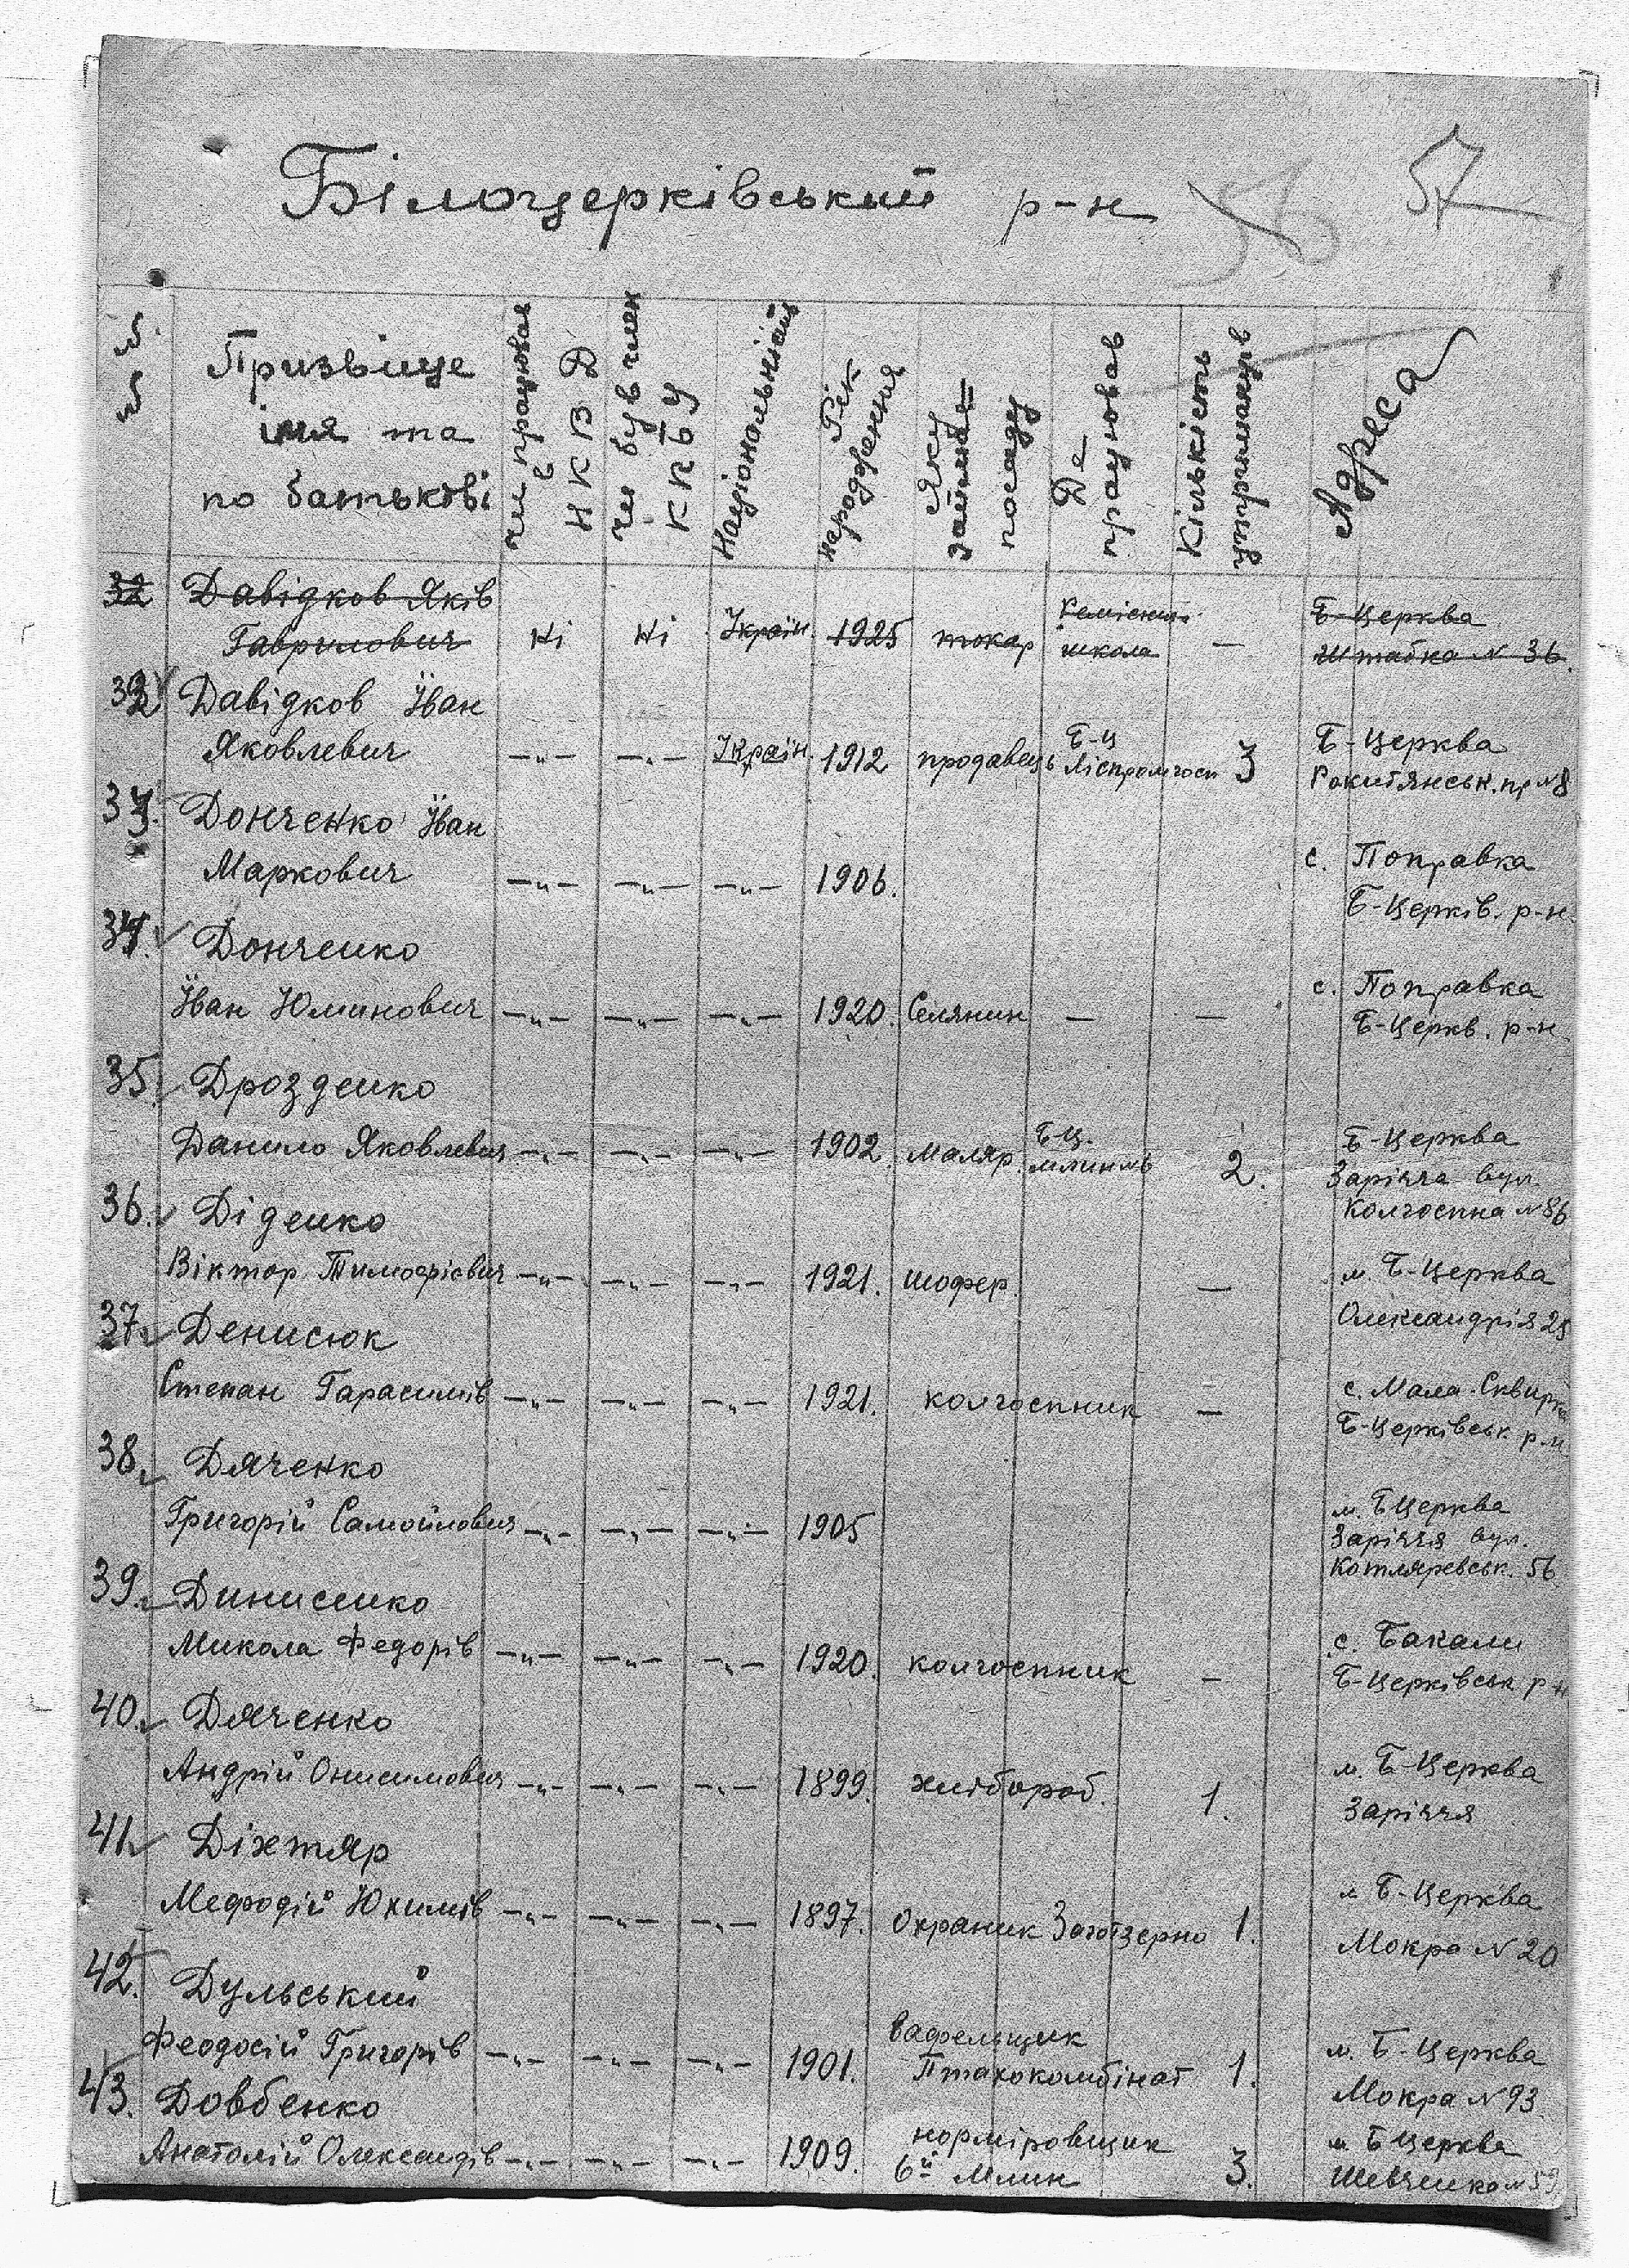 Білоцерківський р-н 56 57
№ №
Призвіще
імя та
по батькові
чи працював
в
НКВД
чи був член
К П б У
Національність
Рік
народження
Яку
займав
посаду
Де
працював
Кількість
утриманців
Адреса
32 Давідков Яків
Гаврилович Ні Ні Україн. 1925 токар школа —
Б-Церква
Штабна № 36.
32 Давідков Іван
Яковлевич —"— —"— Україн. 1912 продавець Б-Ц Ліспромгосп 3
Б-Церква
Рокитянськ. пр №8
33. Донченко Іван
Маркович —"— —"— —"— 1906.
с. Поправка
Б-Церків. р-н.
34. Донченко
Іван Юминович —"— —"— —"— 1920. Селянин — —
с. Поправка
Б-Церкв. р-н.
35. Дрозденко
Данило Яковлевич —"— —"— —"— 1902. маляр. БЦ. млинмь 2.
Б-Церква
Заріччя вул.
Колгоспна №86
36. Діденко
Віктор Тимофієвич —"— —"— —"— 1921. шофер. —
м. Б-Церква
Олександрія 25
37. Денисюк
Степан Гарасимів —"— —"— —"— 1921. колгоспник —
с. Мала-Сквирка
Б-Церківськ. р-н
38. Дяченко
Григорій Самойлович —"— —"— —"— 1905
м. БЦерква
Заріччя вул.
Котляревськ. 56
39. Динисенко
Микола Федорів —"— —"— —"— 1920. колгоспник —
с. Бакали
Б-Церківськ р-н
40. Дяченко
Андрій Онисимович —"— —"— —"— 1899. хлібороб. 1.
м. Б-Церква
Заріччя
41. Діхтяр
Мефодій Юхимів —"— —"— —"— 1897. Охраник Заготзерно 1.
м Б-Церква
Мокра № 20
42. Дульський
Феодосій Григорів —"— —"— —"— 1901. вафельщик
Птахокомбінат 1.
м. Б-Церква
Мокра № 93.
43. Довбенко
Анатолій Олександів —"— —"— —"— 1909. норміровщик
6й Млин 3.
м БЦерква
Шевченко № 59.